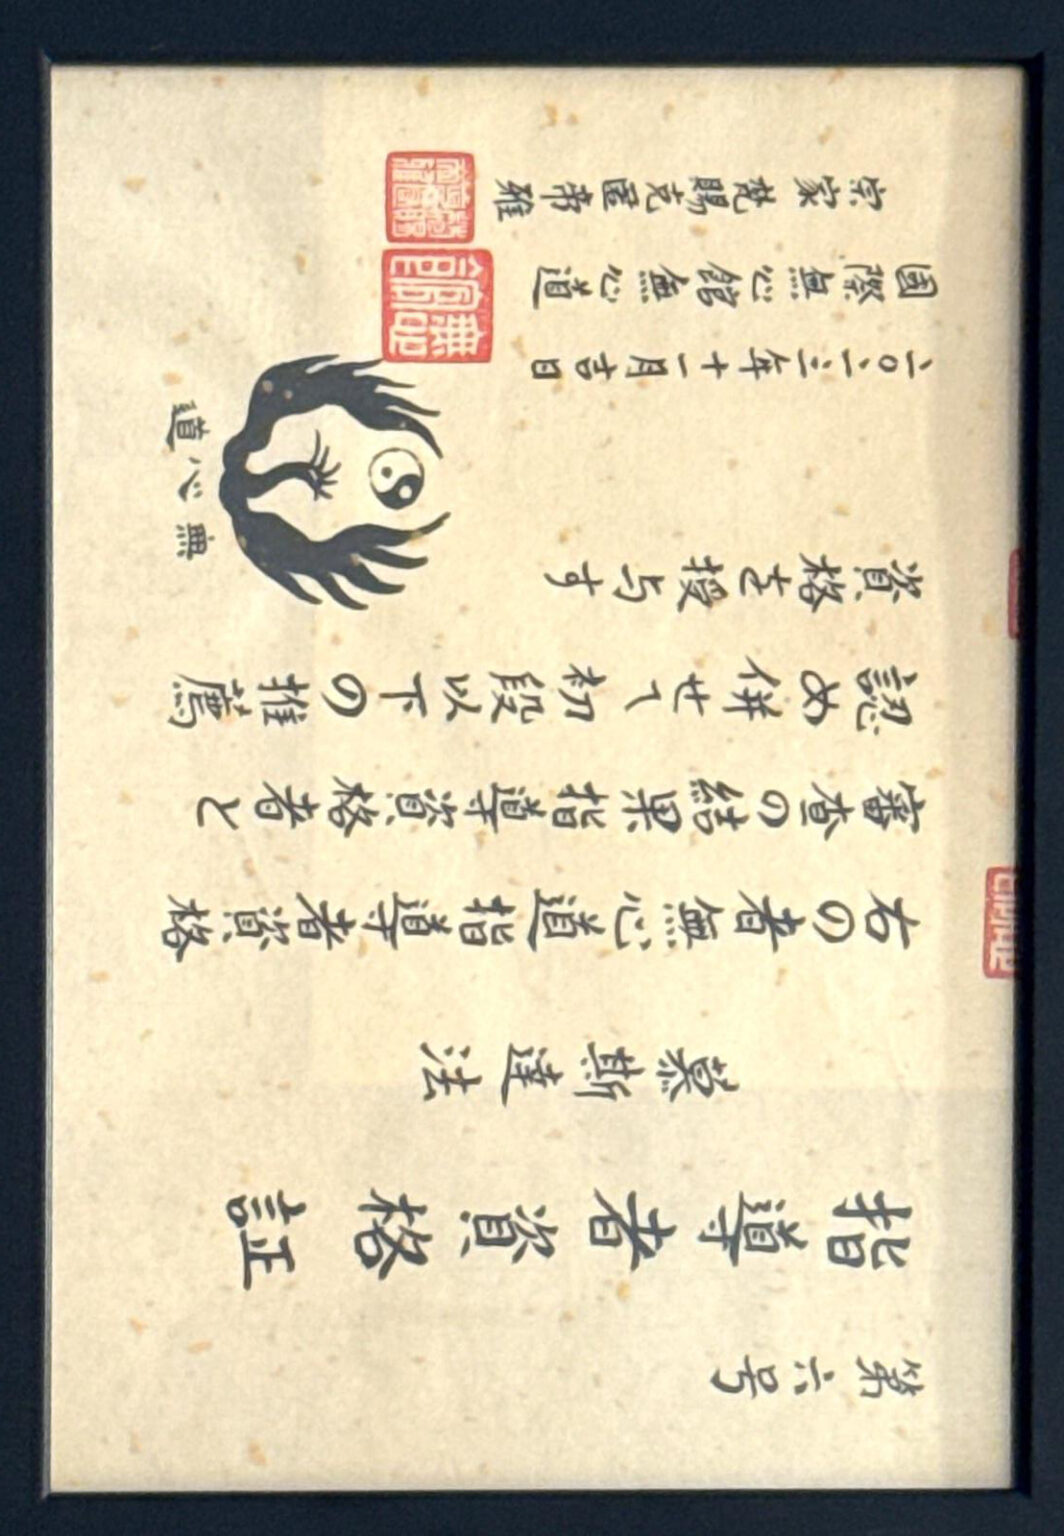 第六号
指導者資格証
慕斯達法
右の者無心道指導者資格
審査の結果指導資格者と
認め併せて初段以下の推薦
資格を授与す
二〇二三年十一月吉日
國際無心館無心道
宗家梵賜克匿帝雅
無心道